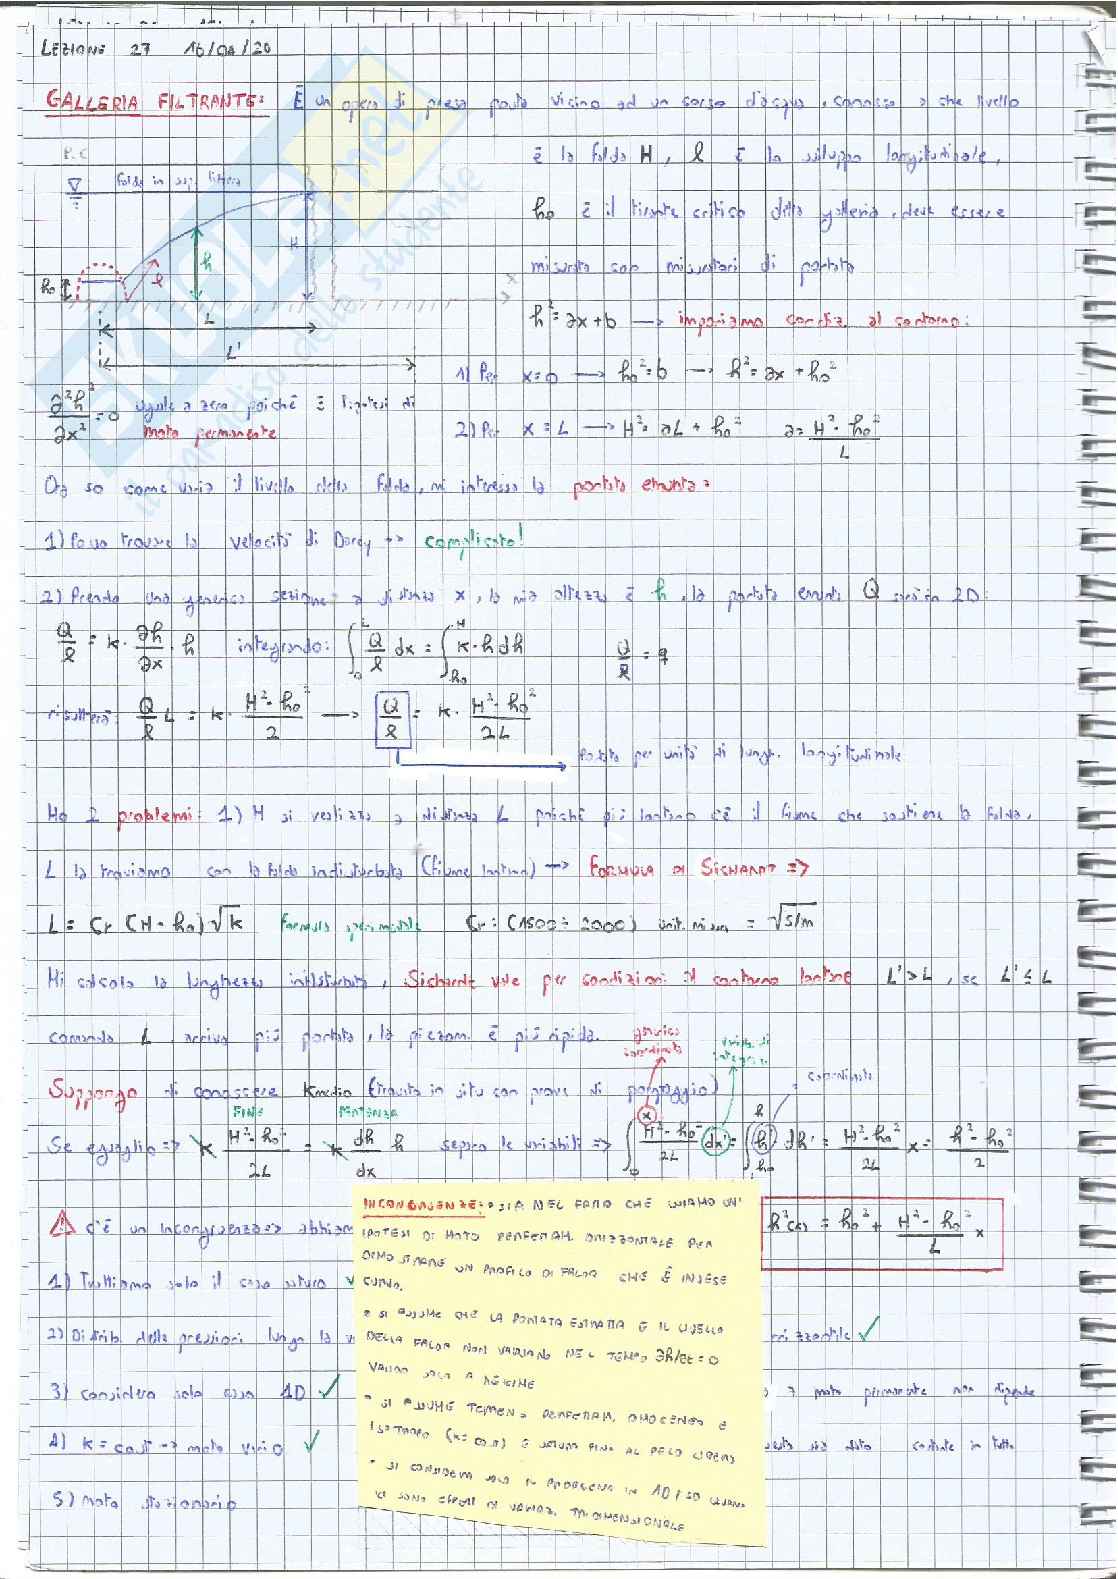 LEZIONE 27 16/04/20
GALLERIA FILTRANTE: È un opera di presa posta vicino ad un corso d'acqua, conosco a che livello
è la falda H, l è lo sviluppo longitudinale,
P.C
falda in sup. libera
h₀ è il tirante critico della galleria, deve essere
misurato con misuratori di portata
h₀ l h H x
L
L'
h² = ax+b → imponiamo condiz. al contorno:
1) Per x=0 → h₀²=b → h²= ax + h₀²
∂²h²/∂x² = 0 uguale a zero poichè ipotesi di
moto permanente
2) Per x = L → H² = aL + h₀² a = (H² - h₀²)/L
Ora so come varia il livello della falda, mi interessa la portata emunta:
1) Posso trovare la velocità di Darcy → complicato!
2) Prendo una generica sezione a distanza x, la mia altezza è h, la portata emunta Q 2D:
Q/l = k · ∂h/∂x · h integrando: ∫₀ᴸ Q/l dx = ∫_{h₀}^{H} k·h dh Q/l = q
risulterà: Q/l L = k · (H² - h₀²)/2 → Q/l = k · (H² - h₀²)/2L
Portata per unità di lungh. longitudinale
Ho 2 problemi: 1) H si verifica a distanza L poichè più lontano c'è il fiume che sostiene la falda.
L la troviamo con la falda indisturbata (fiume lontano) → FORMULA DI SICHARDT ⇒
L = Cr (H - h₀)√k formula sperimentale Cr: (1500 ÷ 2000) unit. misura = √s/m
Mi calcolo la lunghezza indisturbata, Sichardt vale per condizioni al contorno lontane L'>L, se L' ≤ L
comanda L, arriva più portata, la piezom. è più ripida.
generica coordinata
variab. di integraz.
coordinata
Suppongo di conoscere Kmedio (trovato in situ con prove di pompaggio)
FINE PARTENZA
Se eguaglio ⇒ k (H² - h₀²)/2L = k dh/dx h separo le variabili ⇒ ∫₀ˣ (H² - h₀²)/2L dx' = ∫_{h₀}^{h} h' dh' = (H² - h₀²)/2L x = (h² - h₀²)/2
h²(x) = h₀² + (H² - h₀²)/L x
⚠ c'è un incongruenza: abbiam
1) Trattiamo solo il caso saturo ✓
2) Distrib. delle pressioni lungo la v
✓
3) considero solo caso 1D ✓
moto permanente non dipende
4) k = cost → moto vario ✓
costante in tutto
5) moto stazionario
INCONGRUENZE: • STA NEL FATTO CHE USIAMO UN'
IPOTESI DI MOTO PERFETTAM. ORIZZONTALE PER
DIMOSTRARE UN PROFILO DI FALDA CHE È INVECE
CURVO.
• SI ASSUME CHE LA PORTATA ESTRATTA E IL LIVELLO
DELLA FALDA NON VARIANO NEL TEMPO ∂h/∂t=0
VALIDO SOLO A REGIME
• SI ASSUME TERRENO PERFETTAM. OMOGENEO E
ISOTROPO (K=cost) E SATURO FINO AL PELO LIBERO
• SI CONSIDERA SOLO IL PROBLEMA IN 1D/2D QUANDO
CI SONO EFFETTI DI VARIAZ. TRIDIMENSIONALE